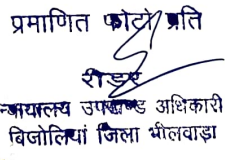 प्रमाणित फोटो प्रति
रीडर
न्यायालय उपखण्ड अधिकारी
बिजोलियां जिला भीलवाड़ा